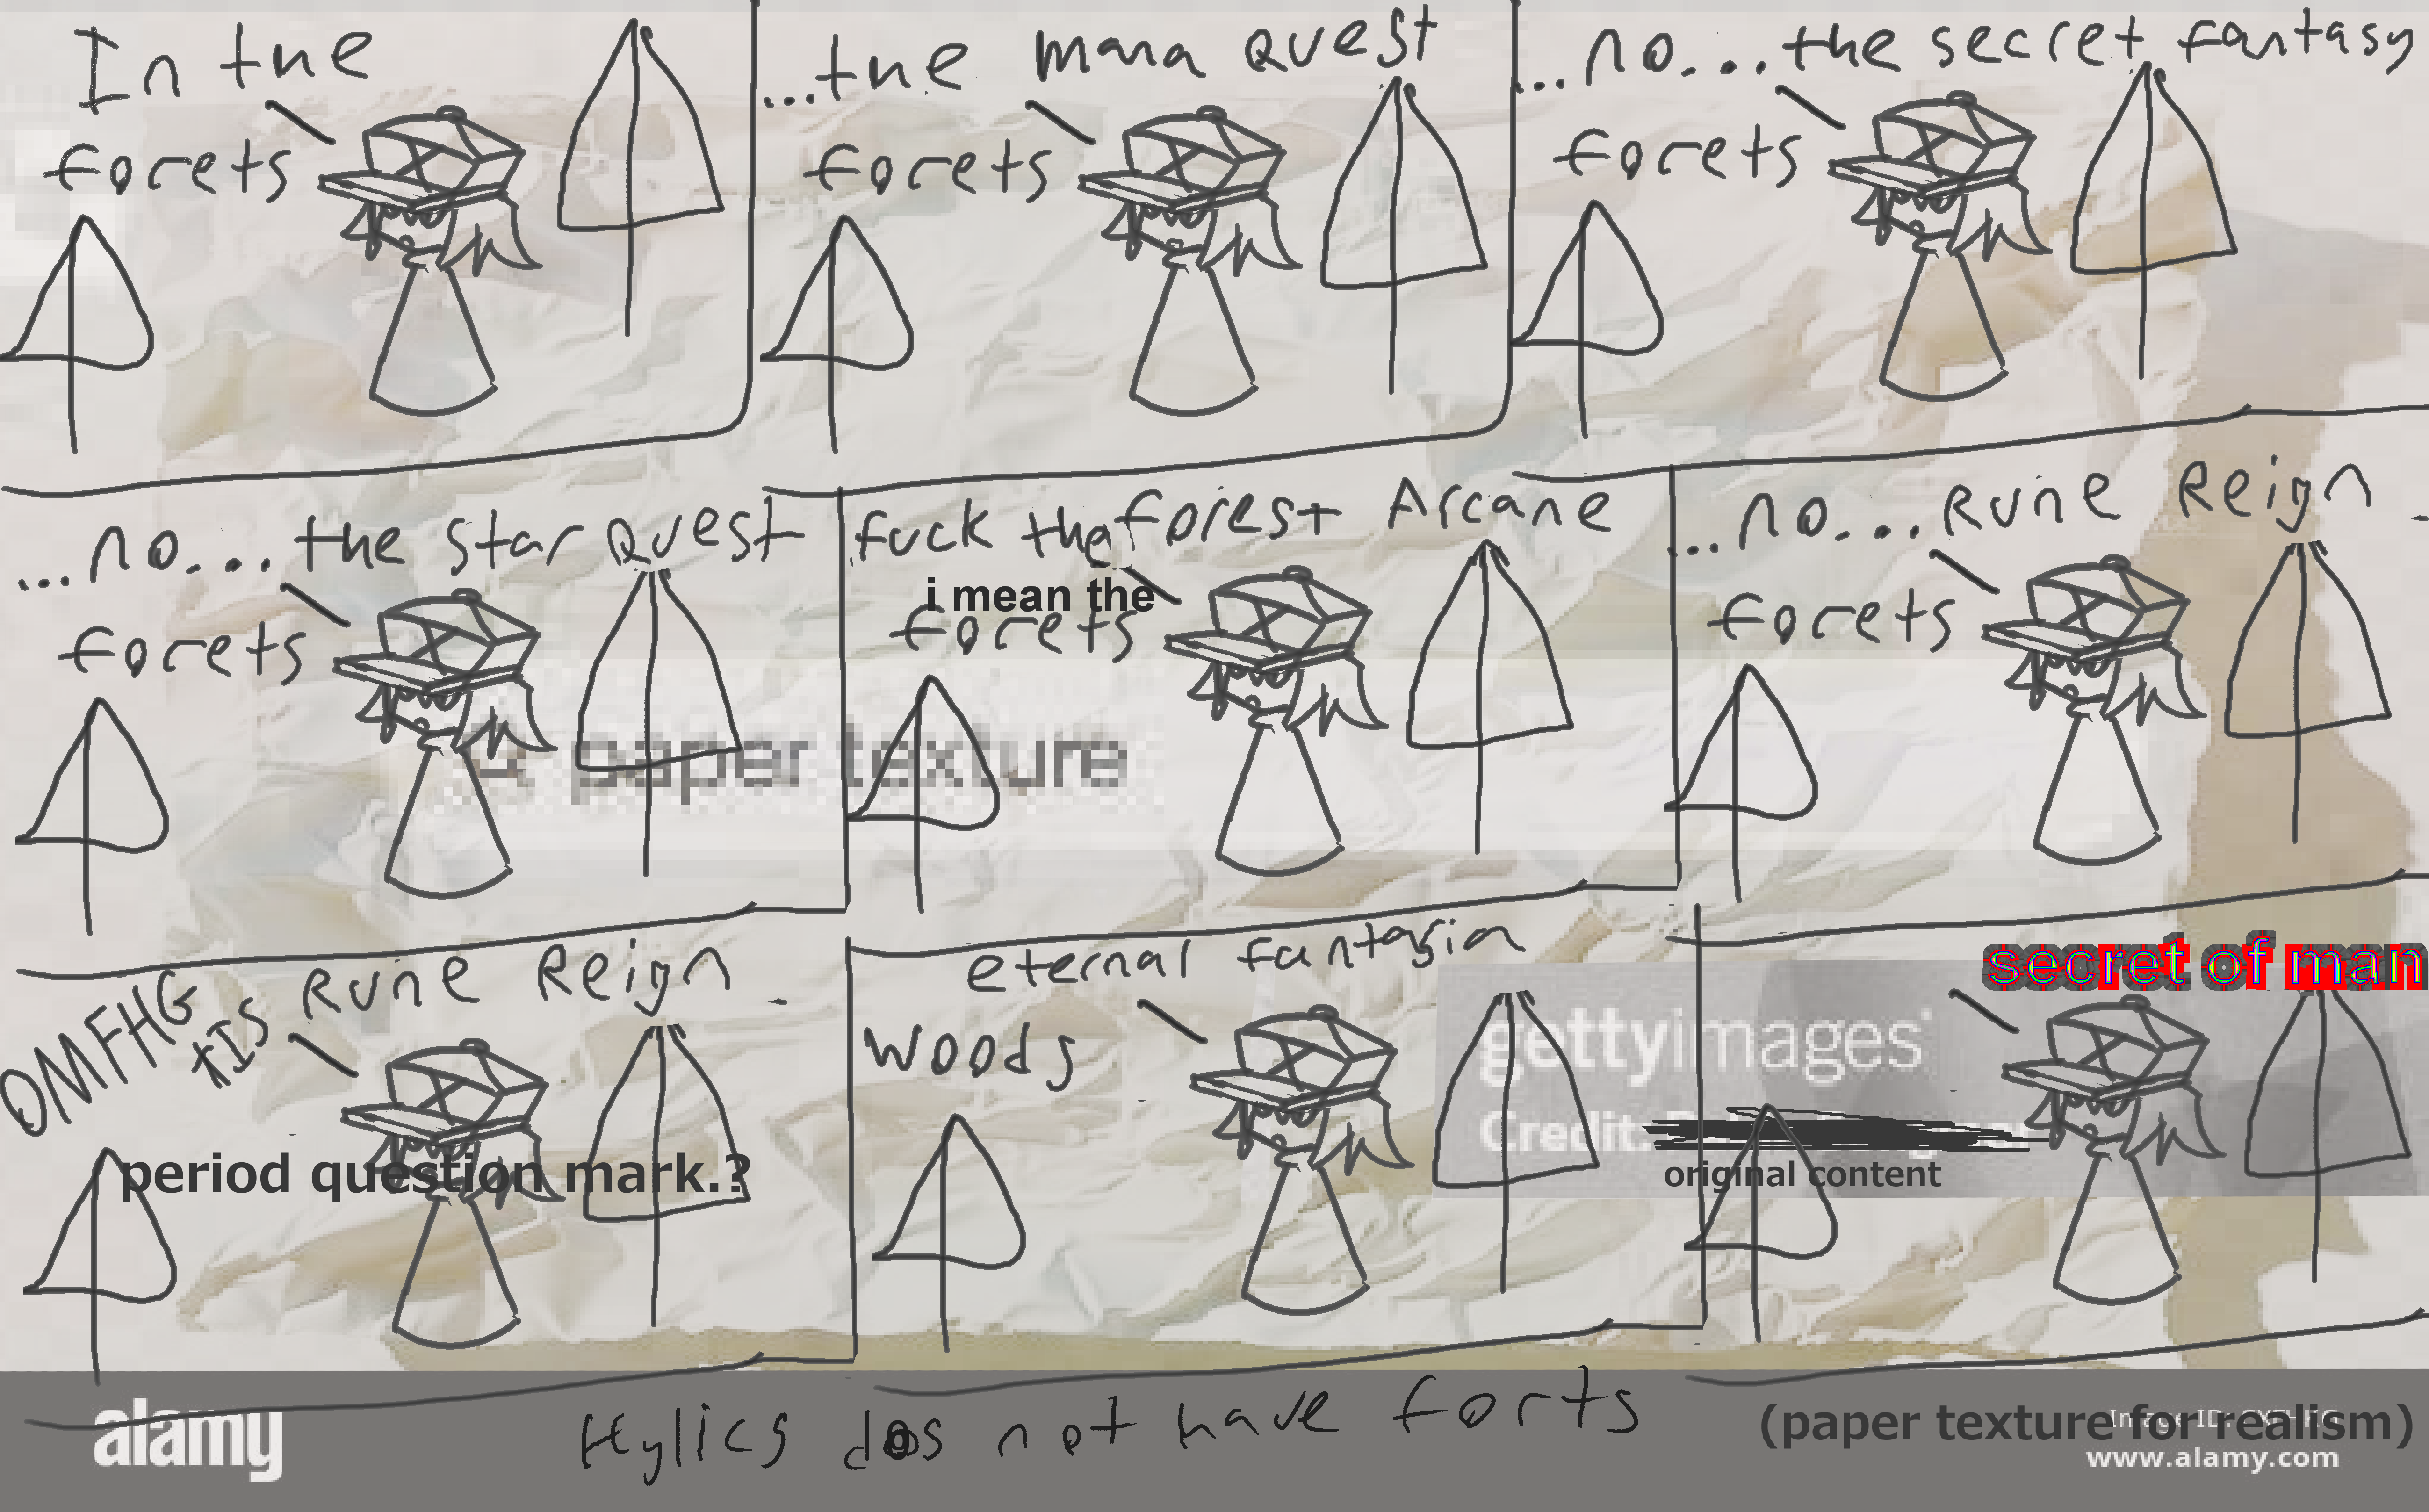 In the
forets
...the mana Quest
forets
...no...the secret fantasy
forets
...no...the star Quest
forets
fuck the forest Arcane
i mean the
forets
...no...Rune Reign
forets
OMFHG
tIS
Rune Reign
period question mark.?
eternal fantasia
woods
secret of man
paper texture
gettyimages
Credit:
original content
Hylics does not have forts
(paper texture for realism)
alamy
www.alamy.com